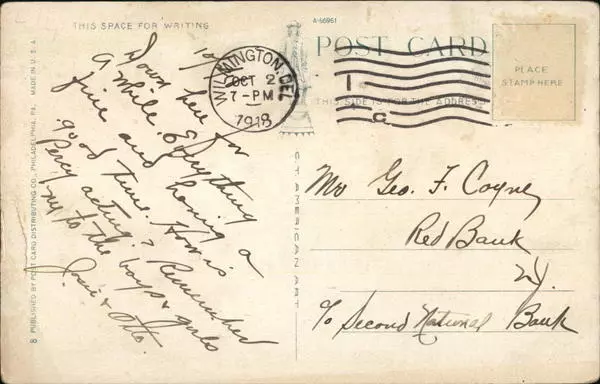 THIS SPACE FOR WRITING
A-66961
POST CARD
PLACE
STAMP HERE
THIS SIDE IS FOR THE ADDRESS
WILMINGTON, DEL.
OCT 2
7-PM
1918
10/
Down here for
a while. Everything
fine and having a
good time. How is
Percy acting? Remember
me to the boys & girls
Josie & Otto.
Mr Geo. F. Coyne
Red Bank
N.J.
c/o Second National Bank
8 PUBLISHED BY POST CARD DISTRIBUTING CO., PHILADELPHIA, PA.
MADE IN U.S.A.
AMERICAN ART